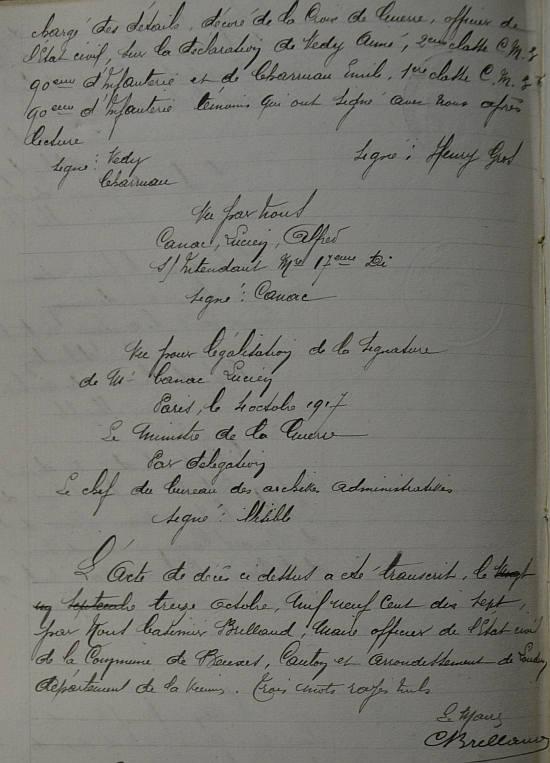 chargé des détails, décoré de la Croix de Guerre, officier de
l'Etat civil, sur la déclaration de Vedy Aimé, 2eme classe C.M. 3
90eme d'Infanterie et de Charruau Emile, 1ere classe C.M. 3
90eme d'Infanterie témoins qui ont signé avec nous après
lecture
signé : Vedy signé : Henry Gros
Charruau
Vu par nous
Canac, Lucien, Alfred
S/Intendant Mre 17eme Di
signé : Canac
Vu pour légalisation de la signature
de Mr Canac Lucien
Paris, le 4 octobre 1917
Le Ministre de la Guerre
Par délégation
Le chef du bureau des archives administratives
signé : Illisible
L'Acte de décès ci dessus a été transcrit, le vingt
septembre treize octobre, mil neuf cent dix sept,
par Nous Casimir Brillaud, Maire officier de l'Etat civil
de la Commune de Beuxes, Canton et arrondissement de Loudun
département de la Vienne. Trois mots rayés nuls
Le Maire
CBrillaud